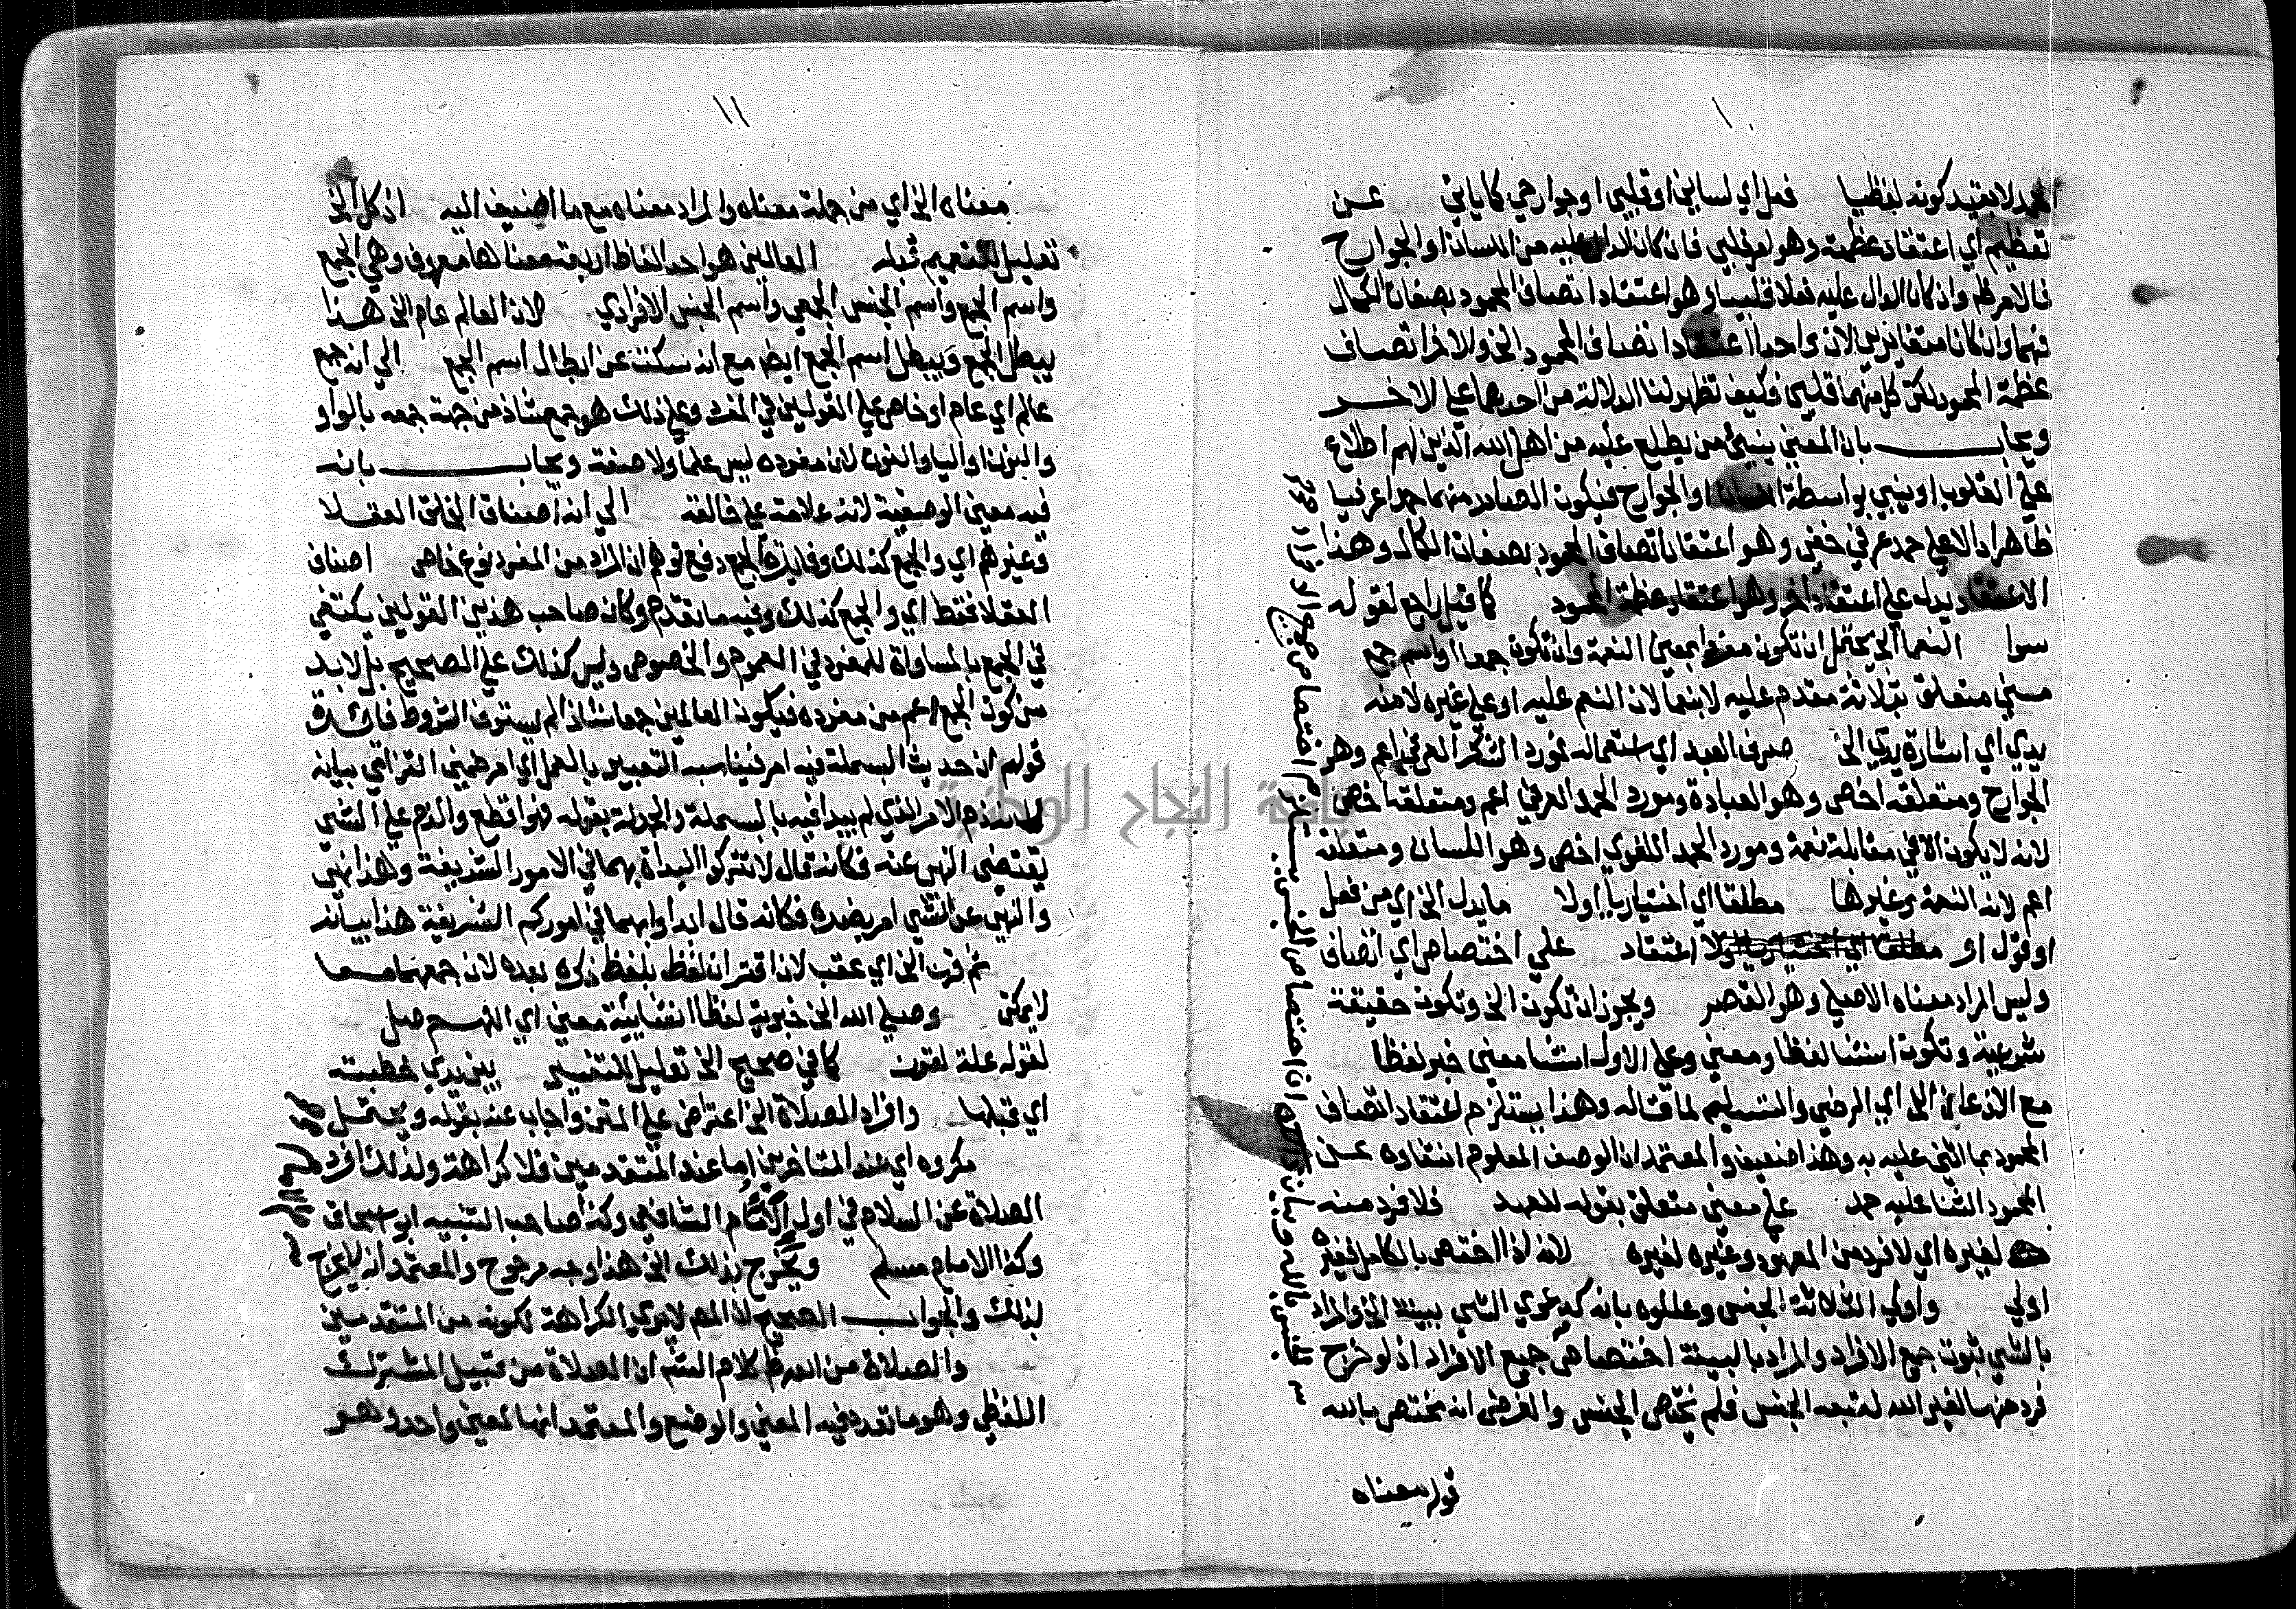 ١٠
الحمد لا بقيد كونه لفظيا فعل اي لساني او قلبي او جوارحي كما ياتي عن
تعظيم اي اعتقاد عظمة وهو امر قلبي فان كان الدال عليه من اللسان او الجوارح
فالامر ظ وان كان الدال عليه فعلا قلبيا وهو اعتقاد اتصاف المحمود بصفات الكمال
فهما وان كانا متغايرين لان واحدا اعتقاد اتصاف المحمود الخ والاخر اتصاف
عظمة المحمود لكن كل منهما قلبي فكيف تظهر لنا الدلالة من احدهما على الاخر
ويجاب بان المعنى ينبئ من يطلع عليه من اهل الله الذين لهم اطلاع
على القلوب او ينبي بواسطة اللسان او الجوارح فيكون الصادر منهما حمدا عرفيا
ظاهرا دالا على حمد عرفي خفي وهو اعتقاد اتصاف المحمود بصفات الكمال وهذا
الاعتقاد يدل على اعتقاد اخر وهو اعتقاد عظمة المحمود كما قيل راجع لقوله
سوا النعما الخ يحتمل ان تكون مفردا بمعنى النعمة وان تكون جمعا او اسم جمع
مني متعلق بثلاثة مقدم عليه لا بنعما لان النعم عليه او على غيره لا منه
يدي اي اشارة يدي الخ صرف العبد اي استعماله فمورد الشكر العرفي اعم وهو
الجوارح ومتعلقه اخص وهو العبادة ومورد الحمد العرفي اعم ومتعلقه اخص
لانه لا يكون الا في مقابلة نعمة ومورد الحمد اللغوي اخص وهو اللسان ومتعلقه
اعم لانه النعمة وغيرها مطلقا اي اختياريا اولا ما يدل الخ اي من فعل
او قول او اعتقاد على اختصاص اي اتصاف
وليس المراد معناه الاصلي وهو القصر ويجوز ان تكون الخ وتكون حقيقة
شرعية وتكون انشا لفظا ومعنى وعلى الاول انشا معنى خبر لفظا
مع الاذعان الخ اي الرضى والتسليم لما قاله وهذا يستلزم اعتقاد اتصاف
المحمود بما اثنى عليه به وهذا ضعيف والمعتمد ان الوصف المعلوم انتفاوه عن
المحمود الثنا عليه حمد على معنى متعلق بقوله للعهد فلا فرد منه
لغيره اي لا فرد من المعهود وغيره لغيره لانه اذا اختص بالكامل فغيره
اولى واولى الثلاثة الجنس وعللوه بانه كدعوى الشي ببينة الخ والمراد
بالشي ثبوت جميع الافراد والمراد بالبينة اختصاص جميع الافراد اذ لو خرج
فرد منها لغير الله لتبعه الجنس فلم يختص الجنس والفرض انه مختص بالله
قوله معناه
١١
معناه الخ اي من جملة معناه والمراد معناه مع ما اضيف اليه اذ كل الخ
تعليل للتعميم قبله العالمين هو احد الفاظ اربعة معناها معروف وهي الجمع
واسم الجمع واسم الجنس الجمعي واسم الجنس الافرادي لان العالم عام الخ هذا
يبطل الجمع ويبطل اسم الجمع ايض مع انه سكت عن ابطال اسم الجمع الى انه جمع
عالم اي عام او خاص على القولين في المفرد وعلى ذلك هو جمع شاذ من جهة جمعه بالواو
والنون او اليا والنون لان مفرده ليس علما ولا صفة ويجاب بانه
فيه معنى الوصفية لانه علامة على خالقه الى انه اصناف الخلق العقلا
وغيرهم اي والجمع كذلك وفايدة الجمع دفع توهم ان المراد من المفرد نوع خاص اصناف
العقلا فقط اي والجمع كذلك وفيه ما تقدم وكان صاحب هذين القولين يكتفي
في الجمع بالمساواة للمفرد في العموم والخصوص وليس كذلك على الصحيح بل لابد
من كون الجمع اعم من مفرده فيكون العالمين جمعا شاذا لم يستوف الشروط فائدة
قولهم ان حديث البسملة فيه امر فيناسبه التعبير بالعمل اي امر ضمني التزامي بيانه
انه ذم الامر الذي لم يبدا فيه بالبسملة والحمدلة بقوله فهو اقطع والذم على الشي
يقتضي النهي عنه فكانه قال لا تتركوا البداة بهما في الامور الشريفة وهذا نهي
والنهي عن الشي امر بضده فكانه قال ابداوا بهما في اموركم الشريفة هذا بيانه
ثم قرن الخ اي عقب لان اقتران لفظ بلفظ ذكره بعده لان جمعهما معا
لا يمكن وصلى الله الخ خبرية لفظا انشائية معنى اي اللهم صل
لقوله علة لقرن كما في صحيح الخ تعليل للتفسير بين يدي خطبته
اي قبلها وافراد الصلاة الخ اعتراض على المتن واجاب عنه بقوله ويحتمل
مكروه اي عند المتاخرين اما عند المتقدمين فلا كراهة ولذلك افرد
الصلاة عن السلام في اول الام الشافعي وكذا صاحب التنبيه ابو اسحاق
وكذا الامام مسلم ويخرج بذلك الخ هذا وجه مرجوح والمعتمد انه لا يخرج
بذلك والجواب الصحيح ان المص لا يرى الكراهة لكونه من المتقدمين
والصلاة من الله ظ كلام الشم ان الصلاة من قبيل المشترك
اللفظي وهو ما تعدد فيه المعنى والوضع والمعتمد انها لمعنى واحد وهو
جامعة النجاح الوطنية